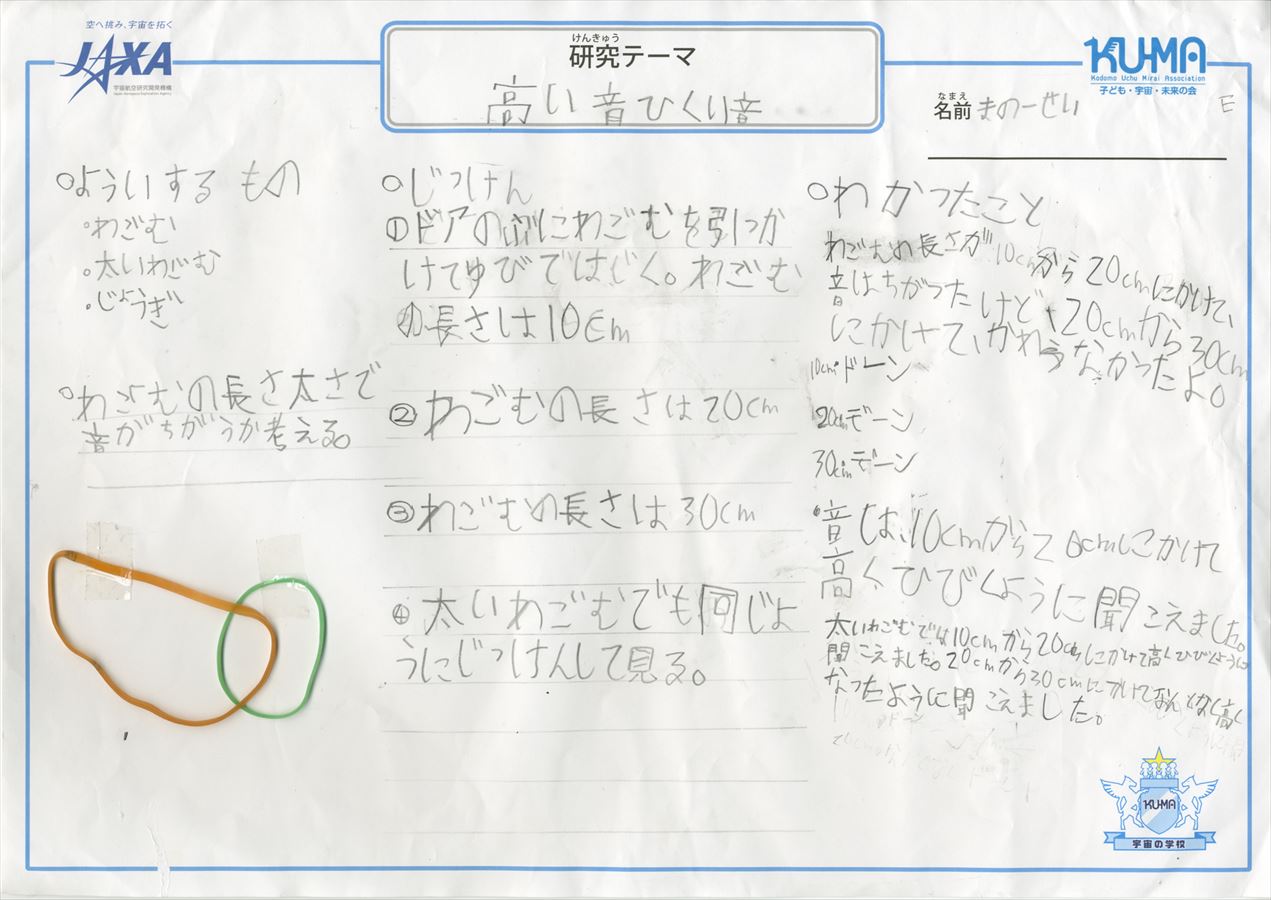 空へ挑み、宇宙を拓く
JAXA
宇宙航空研究開発機構
Japan Aerospace Exploration Agency
けんきゅう
研究テーマ
高い音ひくい音
KU-MA
Kodomo Uchu Mirai Association
子ども・宇宙・未来の会
なまえ
名前 まのーせい
E
○よういする もの
・わごむ
・太いわごむ
・じょうぎ
○わごむの長さ太さで
音がちがうか考える。
○じっけん
①ドアの にわごむを引っか
けてゆびではじく。わごむ
の長さは10cm
②わごむの長さは20cm
③わごむの長さは30cm
④太いわごむでも同じよ
うにじっけんして見る。
○わかったこと
わごむの長さが10cmから20cmにかけて、
音はちがったけど、20cmから30cm
にかけて、かわらなかったよ。
10cm・ドーン
20cmデーン
30cmデーン
・音は、10cmから 0cmにかけて
高くひびくように聞こえました。
太いわごむでは10cmから20cmにかけて高くひびくように
聞こえました。20cmから30cmにかけてなんとなく高く
なったように聞こえました。
KU-MA
宇宙の学校